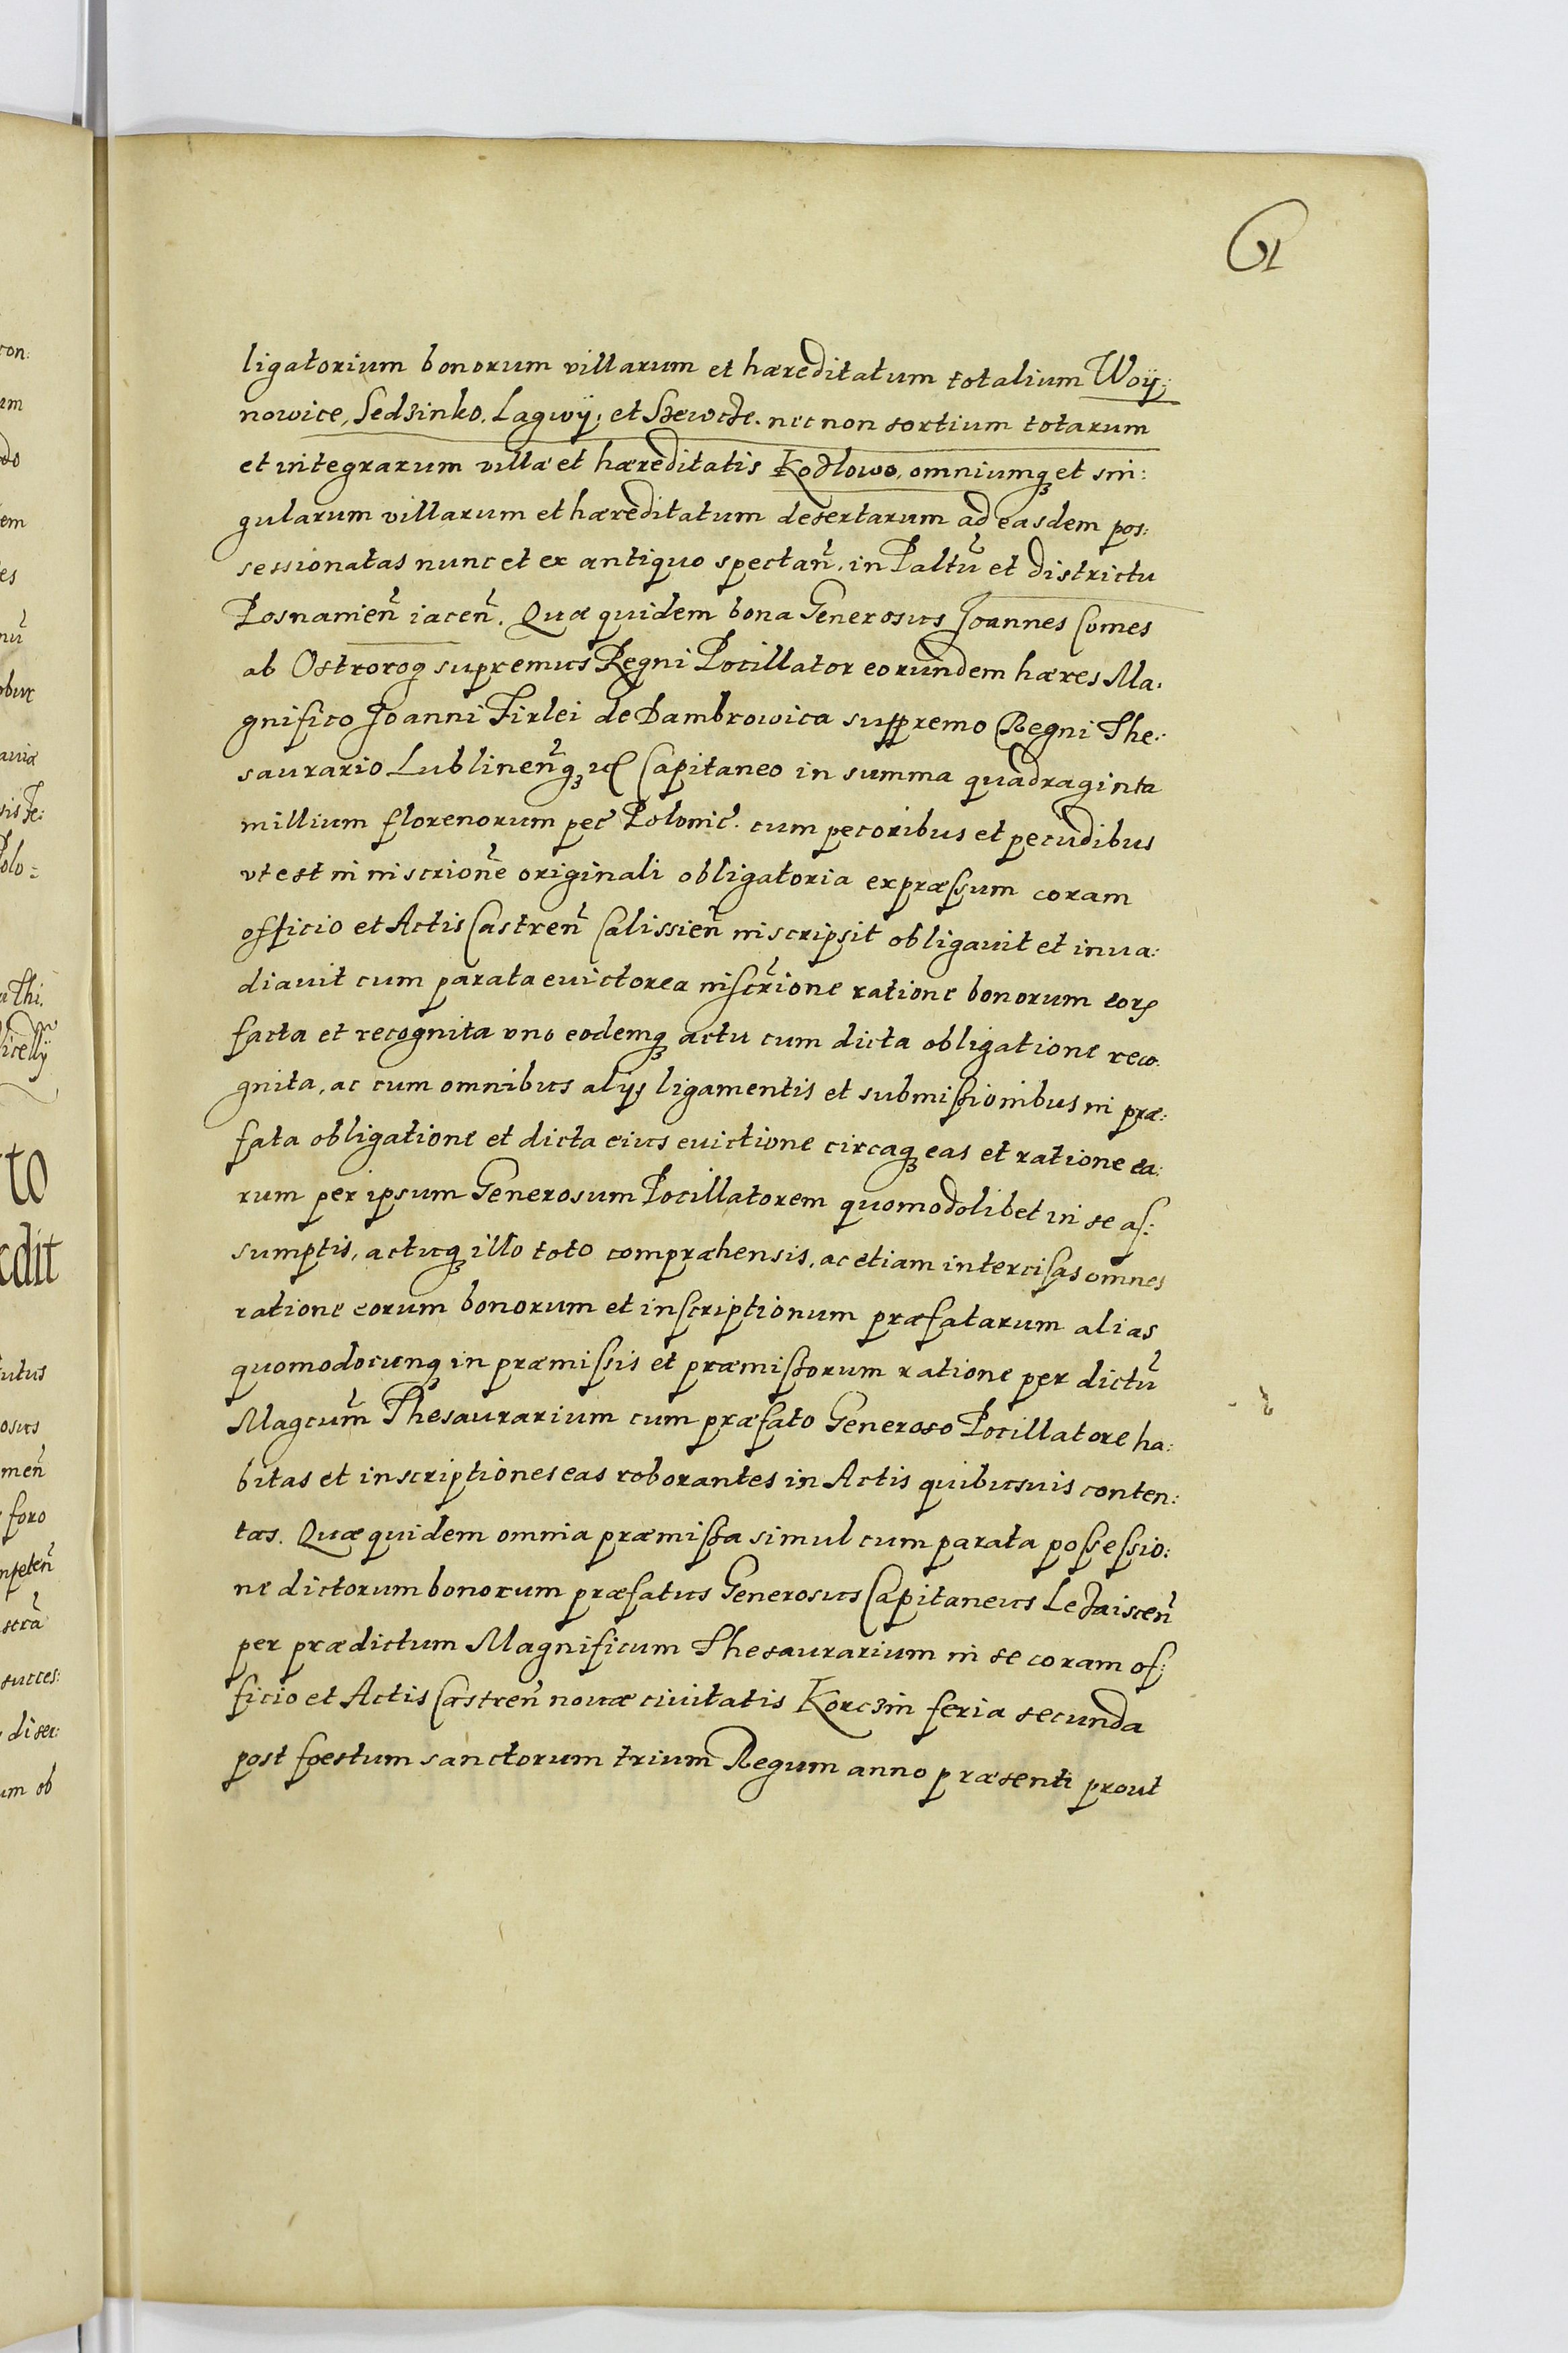 61
ligatorium bonorum villarum et hæreditatum totalium Woÿ:
nowice, Sedzinko. Lagwÿ, et Szewcze. nec non sortium totarum
et integrarum villæ et hæreditatis Kozlowo, omniumqȝ et sin:
gularum villarum et hæreditatum desertarum ad easdem pos:
sessionatas nunc et ex antiquo spectan̄. in Paltū et districtu
Posnamien̄ iacen̄. Quæ quidem bona Generosus Joannes Comes
ab Ostrorog supremus Regni Pocillator eorundem hæres Ma:
gnifico Joanni Firlei de Dambrowica suppremo Regni The:
saurario Lublinen̄qȝ Capitaneo in summa quadraginta
millium florenorum pec̄ Polonic̄. cum pecoribus et pecudibus
vt est in inscrionē originali obligatoria expræssum coram
officio et Actis Castren̄ Calissien̄ inscripsit obligauit et inua:
diauit cum parata euictorea inscr̄ione ratione bonorum eorꝝ
facta et recognita vno eodemqȝ actu cum dicta obligatione reco:
gnita, ac cum omnibus alijs ligamentis et submissionibus in præ:
fata obligatione et dicta eius euictione circaqȝ eas et ratione ea:
rum per ipsum Generosum Pocillatorem quomodolibet in se as:
sumptis, actuqȝ illo toto compræhensis, ac etiam intercisas omnes
ratione eorum bonorum et inscriptionum præfatarum alias
quomodocunqȝ in præmissis et præmissorum ratione per dictū
Magcum̄ Thesaurarium cum præfato Generoso Pocillatore ha:
bitas et inscriptiones eas roborantes in Actis quibusuis conten:
tas. Quæ quidem omnia præmissa simul cum parata possessio:
ne dictorum bonorum præfatus Generosus Capitaneus Lezaiscen̄
per prædictum Magnificum Thesaurarium in se coram of:
ficio et Actis Castren̄ nouæ ciuitatis Korczin feria secunda
post foestum sanctorum trium Regum anno præsenti prout